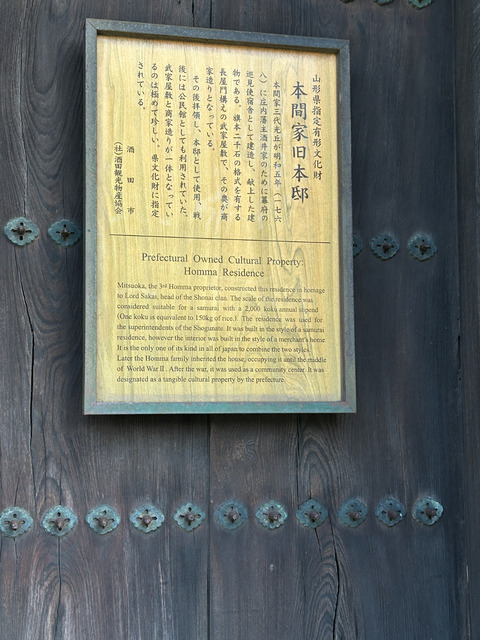 山形県指定有形文化財
本間家旧本邸
本間家三代光丘が明和五年（一七六
八）に庄内藩主酒井家のために幕府の
巡見使宿舎として建造し、献上した建
物である。旗本二千石の格式を有する
長屋門構えの武家屋敷で、その奥が商
家造りとなっている。
その後拝領し、本邸として使用、戦
後には公民館としても利用されていた。
武家屋敷と商家造りが一体となってい
るのは極めて珍しい。県文化財に指定
されている。
酒田市
（社）酒田観光物産協会
Prefectural Owned Cultural Property:
Homma Residence
Mitsuoka, the 3rd Homma proprietor, constructed this residence in homage
to Lord Sakai, head of the Shonai clan. The scale of the residence was
considered suitable for a samurai with a 2,000 koku annual stipend
(One koku is equivalent to 150kg of rice.) The residence was used for
the superintendents of the Shogunate. It was built in the style of a samurai
residence, however the interior was built in the style of a merchant's home.
It is the only one of its kind in all of japan to combine the two styles.
Later the Homma family inherited the house, occupying it until the middle
of World War II. After the war, it was used as a community center. It was
designated as a tangible cultural property by the prefecture.